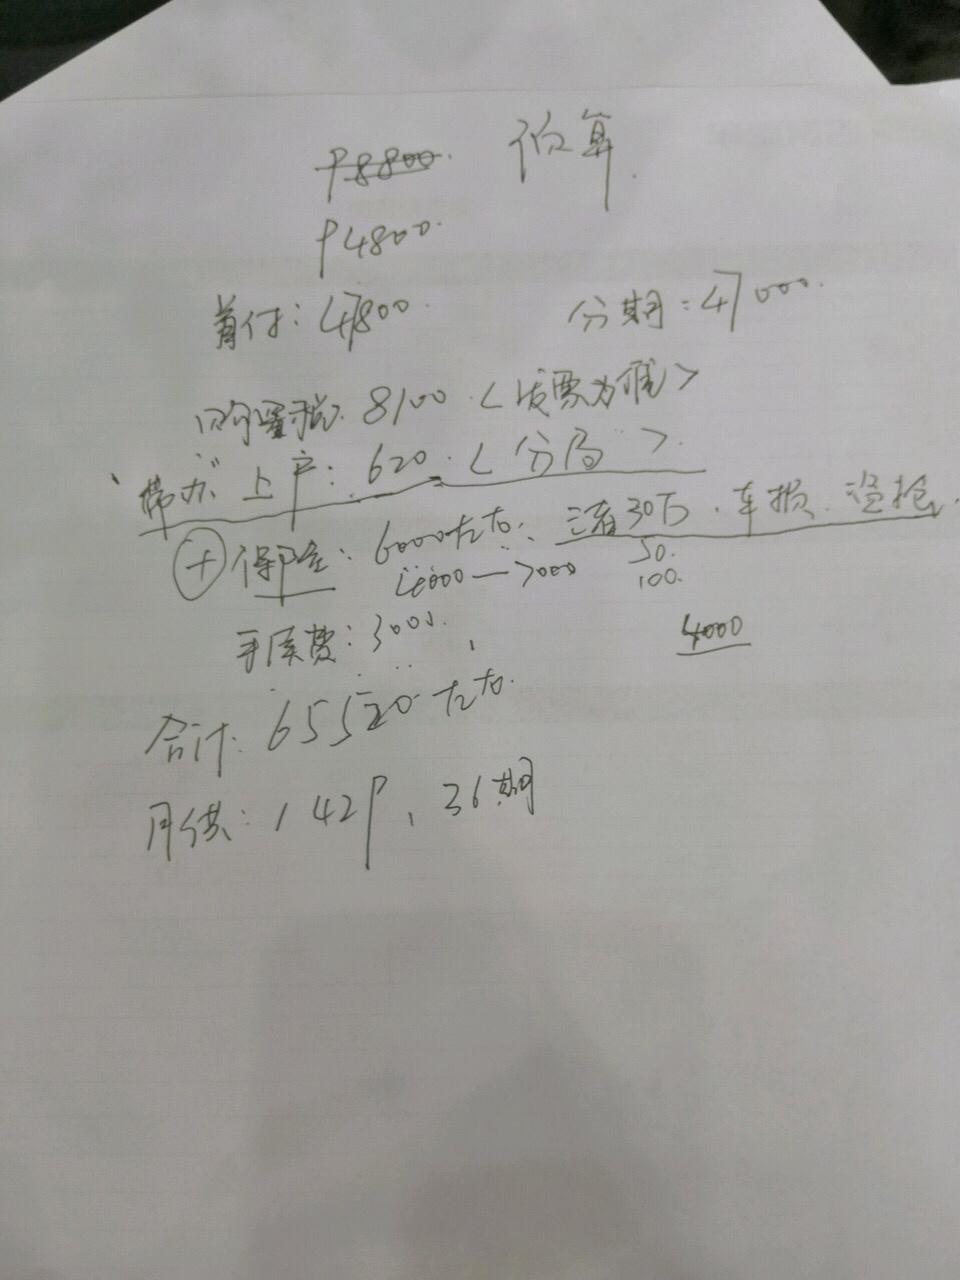 98800. 估算.
94800.
首付: 47800. 分期: 47000.
购置税. 8100. <发票为准>
"带办" 上户: 620. <分局>.
+ 保险: 6000左右: 三者30万. 车损. 盗抢.
6000—7000 50.
100.
4000
手续费: 3000.
合计: 65520左右.
月供: 1429, 36期